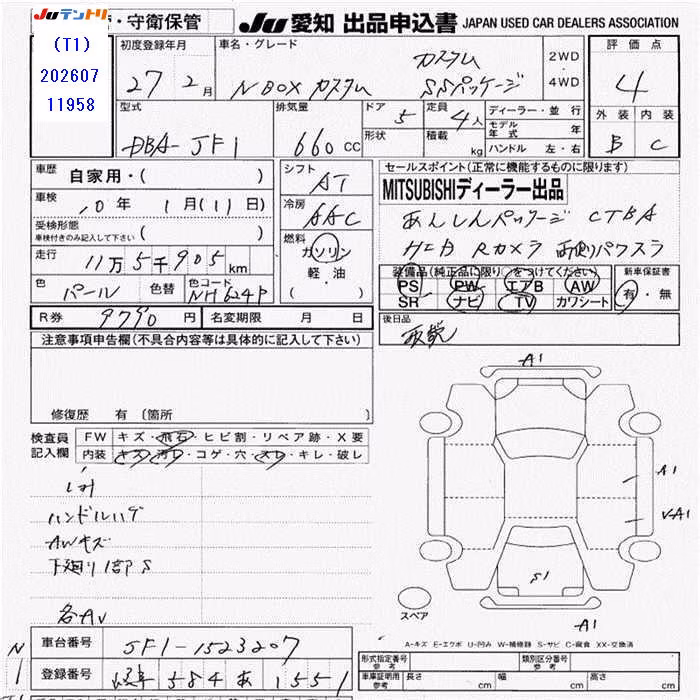 Juテントリ
(T1)
202607
11958
・守衛保管
Ju 愛知 出品申込書 JAPAN USED CAR DEALERS ASSOCIATION
初度登録年月 27年 2月
車名・グレード N BOX カスタム カスタム SSパッケージ
2WD ・ 4WD
評価点 4
外装 B 内装 C
型式 DBA-JF1
排気量 660 CC
ドア 5
形状
定員 4人
積載 kg
ディーラー・並行
モデル年式 年
ハンドル 左・右
車歴 自家用・( )
車検 10年 1月(11日)
受検形態
車検付きのみ記入して下さい ( )
走行 11万5千905km
色 パール 色替 色コード NH624P
シフト AT
冷房 AAC
燃料 ガソリン 軽・油 ( )
セールスポイント(正常に機能するものに限ります)
MITSUBISHIディーラー出品
あんしんパッケージ CTBA
HID Rカメラ 両側パワスラ
装備品(純正品に限り○をつけてください)
PS PW エアB AW
SR ナビ TV カワシート
新車保証書 有・無
R券 9790円 名変期限 月 日
後日品 取説
注意事項申告欄(不具合内容等は具体的に記入して下さい)
修復歴 有 〔箇所 〕
検査員記入欄
FW キズ・飛石・ヒビ割・リペア跡・X要
内装 キズ・汚レ・コゲ・穴・スレ・キレ・破レ
ハンドルハゲ
AWキズ
下廻り1部S
各AU
A1
A1
S1
A1
スペア
A-キズ E-エクボ U-凹み W-補修跡 S-サビ C-腐食 XX-交換済
車台番号 JF1-1523207
登録番号 584 あ 1551
形式指定番号 参考 類別区分番号 参考
車庫証明用 参考 長さ cm 幅 cm 高さ cm